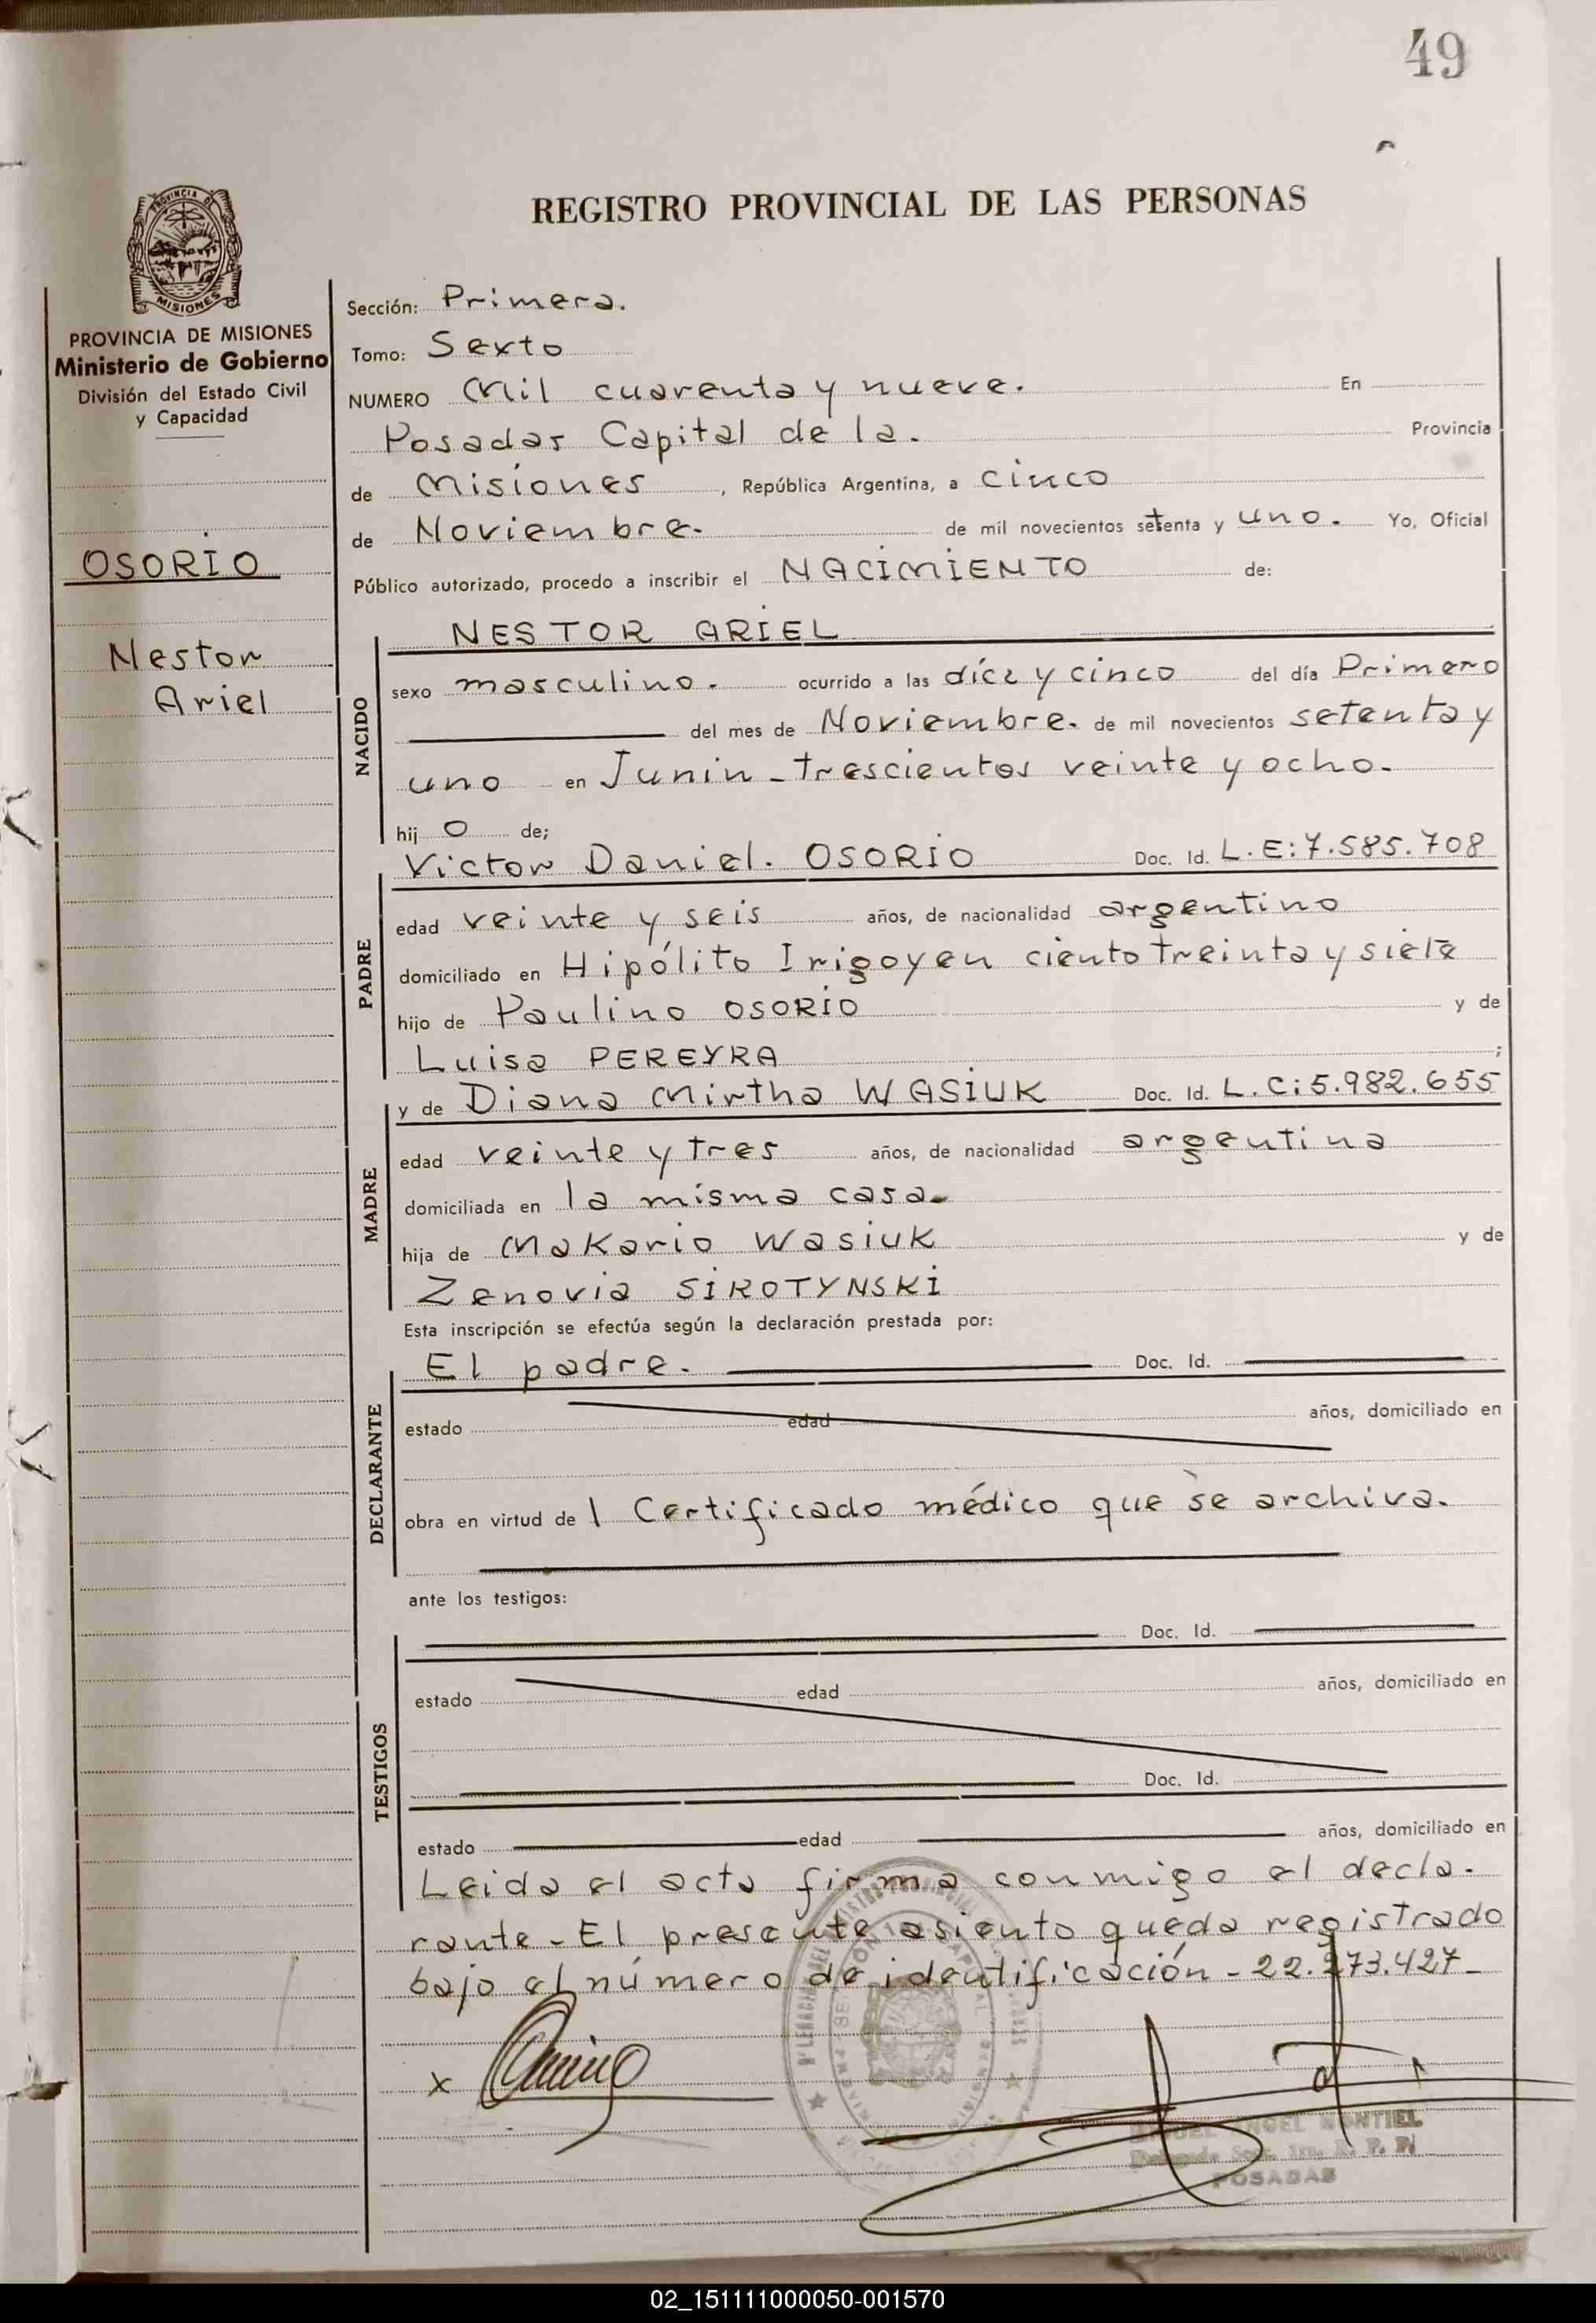 49
REGISTRO PROVINCIAL DE LAS PERSONAS
PROVINCIA DE MISIONES
Ministerio de Gobierno
División del Estado Civil
y Capacidad
OSORIO
Nestor
Ariel
Sección: Primera.
Tomo: Sexto
NUMERO Mil cuarenta y nueve. En
Posadas Capital de la. Provincia
de Misiones, República Argentina, a cinco
de Noviembre. de mil novecientos setenta y uno. Yo, Oficial
Público autorizado, procedo a inscribir el NACIMIENTO de:
NACIDO
NESTOR ARIEL
sexo masculino. ocurrido a las díez y cinco del día Primero
del mes de Noviembre. de mil novecientos setenta y
uno en Junin - trescientos veinte y ocho.
hijo de;
PADRE
Victor Daniel. OSORIO Doc. Id. L.E: 7.585.708
edad veinte y seis años, de nacionalidad argentino
domiciliado en Hipólito Irigoyen ciento treinta y siete
hijo de Paulino OSORIO y de
Luisa PEREYRA ;
MADRE
y de Diana Mirtha WASIUK Doc. Id. L.C: 5.982.655
edad veinte y tres años, de nacionalidad argentina
domiciliada en la misma casa.
hija de Makario Wasiuk y de
Zenovia SIROTYNSKI
Esta inscripción se efectúa según la declaración prestada por:
DECLARANTE
El padre. Doc. Id.
estado edad años, domiciliado en
obra en virtud de 1 Certificado médico que se archiva.
ante los testigos:
TESTIGOS
Doc. Id.
estado edad años, domiciliado en
Doc. Id.
estado edad años, domiciliado en
Leida el acta firma conmigo el decla-
rante - El presente asiento queda registrado
bajo el número de identificación - 22.273.427 -
x
MIGUEL ANGEL MONTIEL
POSADAS
02_151111000050-001570